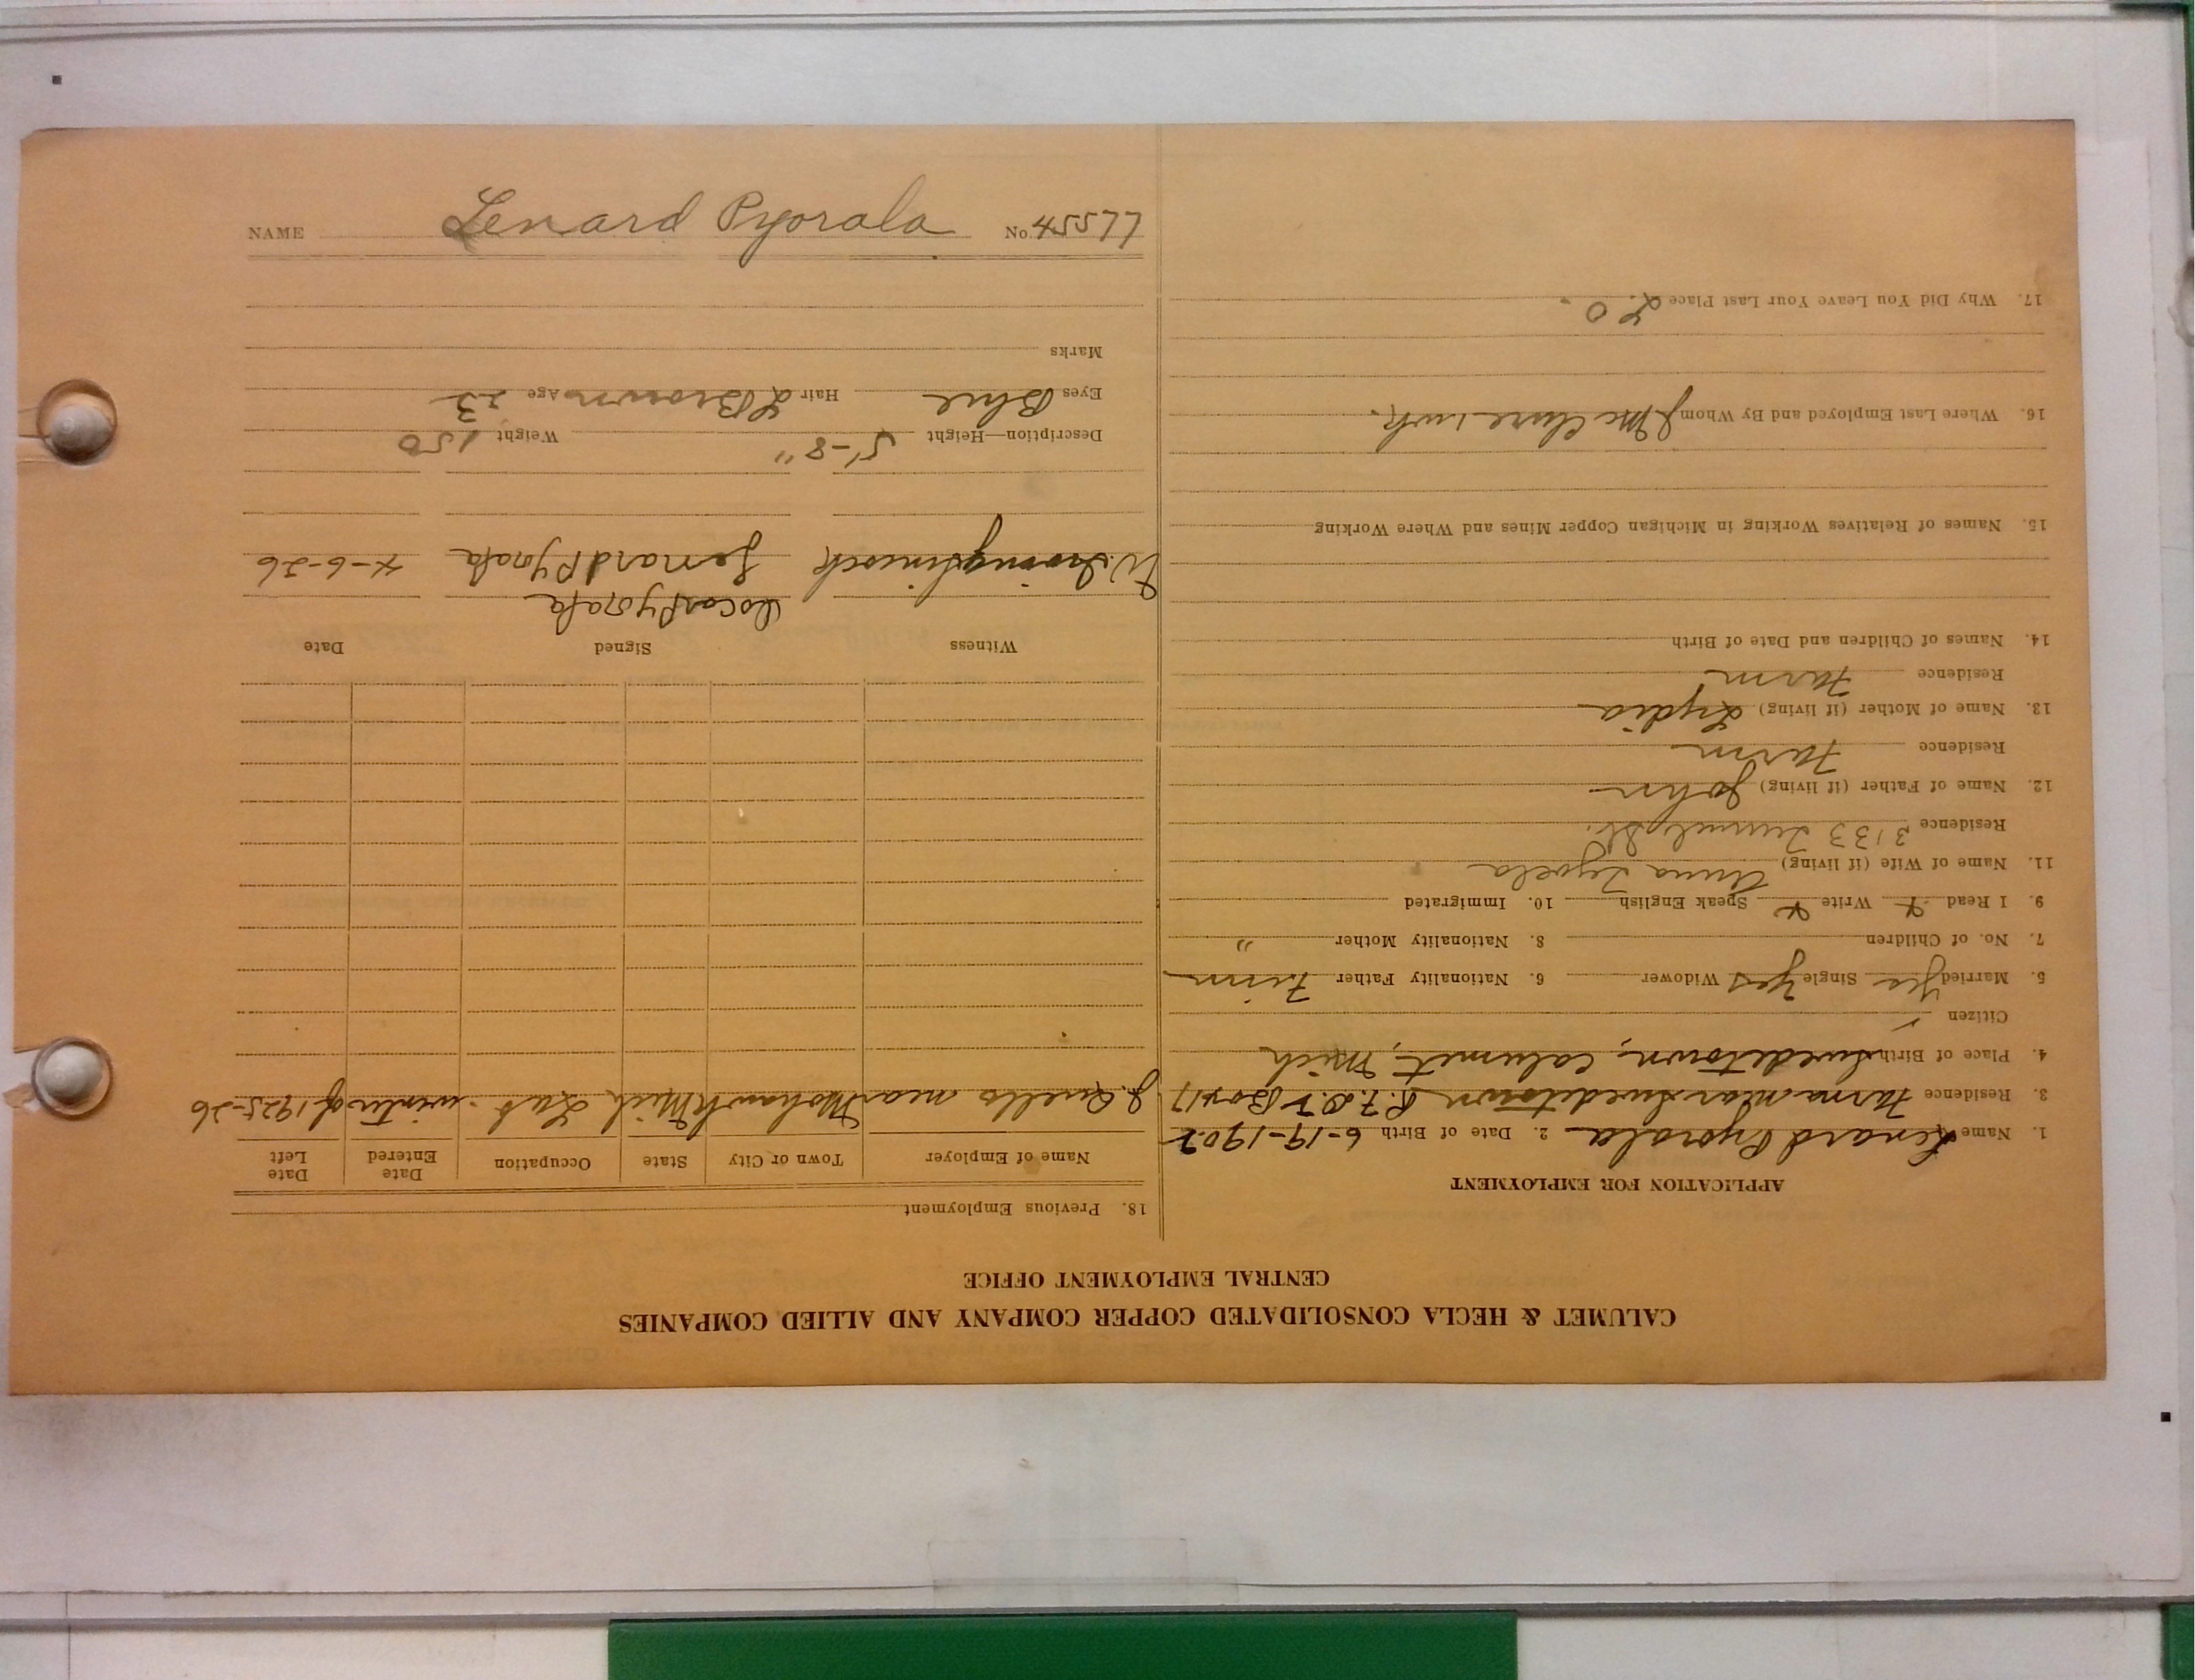 NAME Lenard Pyorala No. 45577
CALUMET & HECLA CONSOLIDATED COPPER COMPANY AND ALLIED COMPANIES
CENTRAL EMPLOYMENT OFFICE
APPLICATION FOR EMPLOYMENT
1. Name Lenard Pyorala 2. Date of Birth 6-19-1902
3. Residence Farm near Swedetown R.F.D. Box 17
4. Place of Birth Swedetown, Calumet, Mich
Citizen
5. Married Yes Single Yes Widower 6. Nationality Father Finn
7. No. of Children 8. Nationality Mother "
9. I Read Write Speak English 10. Immigrated
11. Name of Wife (if living) Anna
Residence 3133 St.
12. Name of Father (if living) John
Residence Farm
13. Name of Mother (if living) Lydia
Residence Farm
14. Names of Children and Date of Birth
15. Names of Relatives Working in Michigan Copper Mines and Where Working
16. Where Last Employed and By Whom J. McClure
17. Why Did You Leave Your Last Place L.O.
18. Previous Employment
Name of Employer Town or City State Occupation Date Entered Date Left
J. Quello near Mohawk Mich Lab. winter of 1925-26
Witness Signed Date
Oscar Pyorala
Lenard Pyorala 4-6-26
Description—Height 5'-8" Weight 150
Eyes Blue Hair L Brown Age 23
Marks